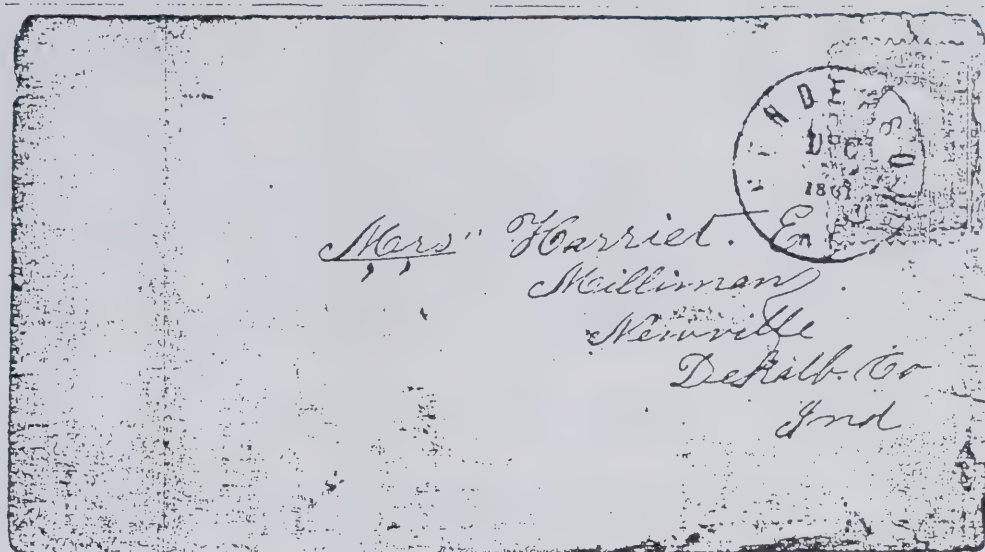 DEC
Mrs" Harriet. E.
Milliman
Newville
DeKalb. Co
Ind